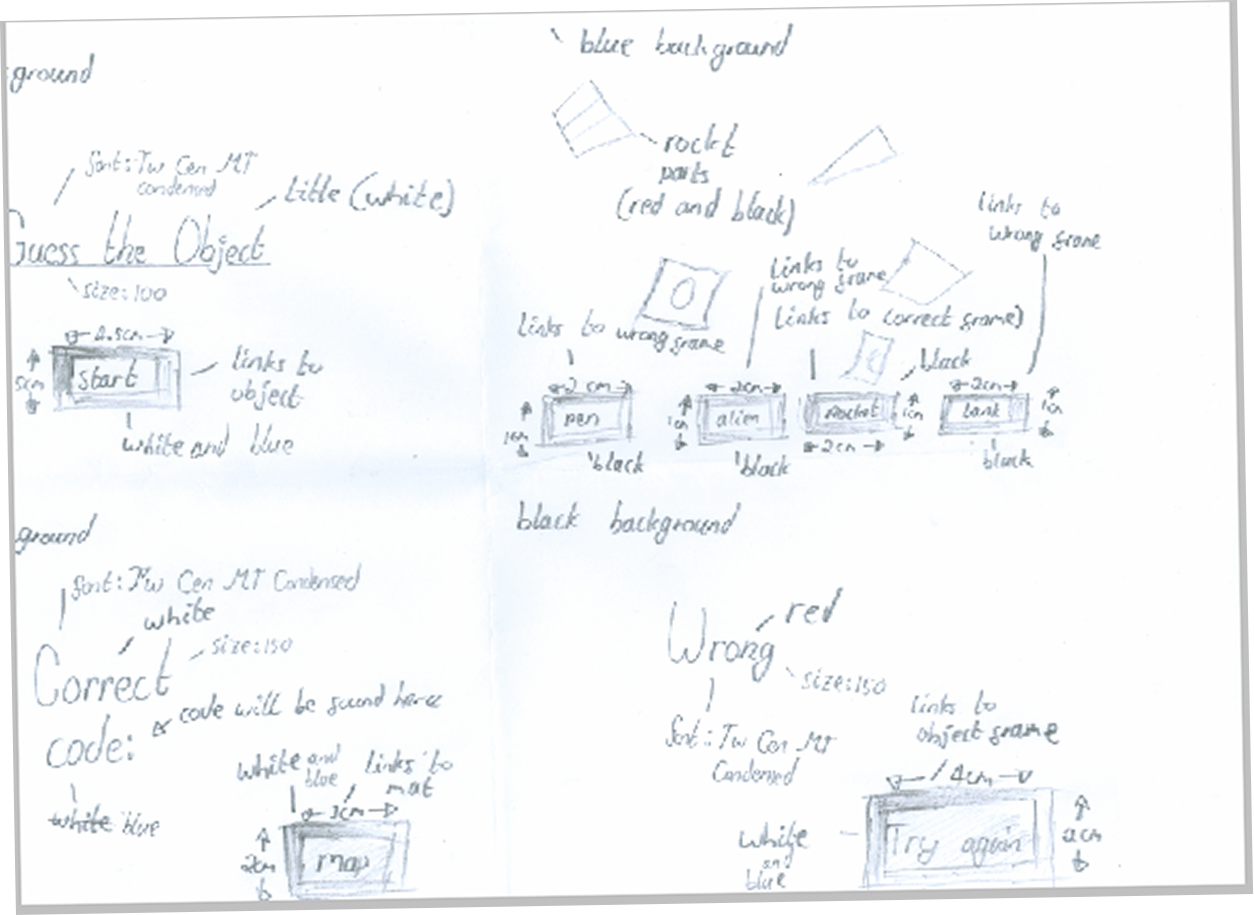 ground
font: Tw Cen MT
condensed
title (white)
Guess the Object
size: 100
5cm
start
links to
object
white and blue
blue background
rocket
parts
(red and black)
links to wrong frame
links to
wrong frame
links to correct frame)
links to
wrong frame
black
2cm
2cm
2cm
2cm
1cm
pen
1cm
alien
Rocket
1cm
tank
1cm
black
black
black
ground
font: Tw Cen MT Condensed
white
size: 150
Correct
code will be found here
code:
white blue
white and
blue
links to
3cm
2cm
map
black background
red
Wrong
size: 150
font: Tw Cen MT
Condensed
links to
object frame
4cm
2cm
white
and
blue
Try again